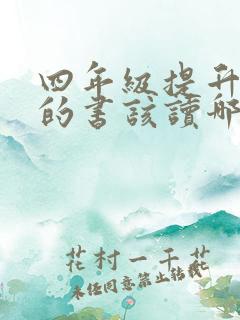 四年級提升
的書該讀哪
花村一千花
未经同意禁止转载